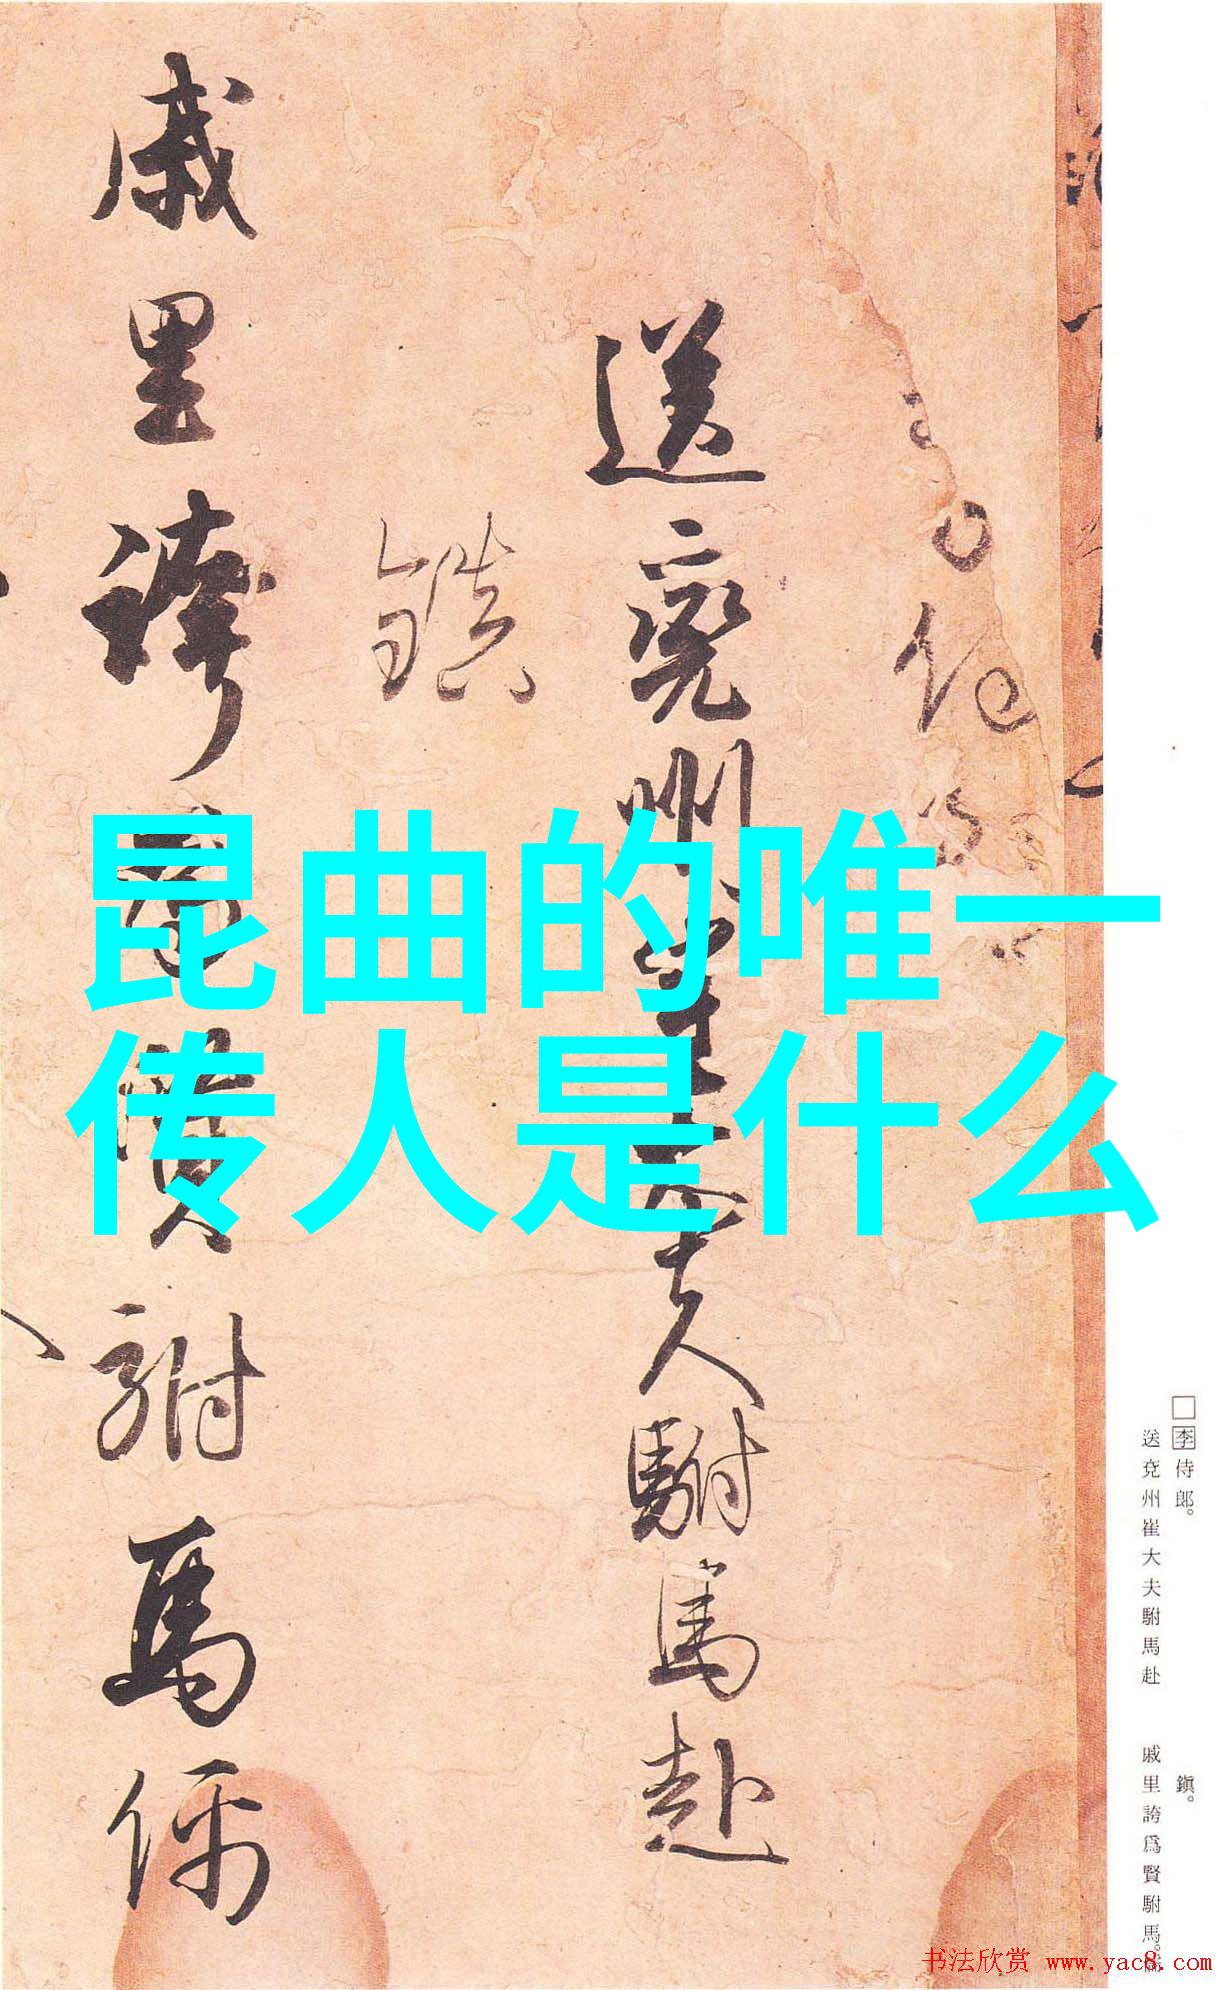 昆曲的唯一
传人是什么
送兖州崔大夫駙馬赴
鎮
戚里誇為賢駙馬儒
□李侍郎。
送兗州崔大夫駙馬赴
鎭。
戚里誇爲賢駙馬。儒
书法欣赏 www.yac8.com